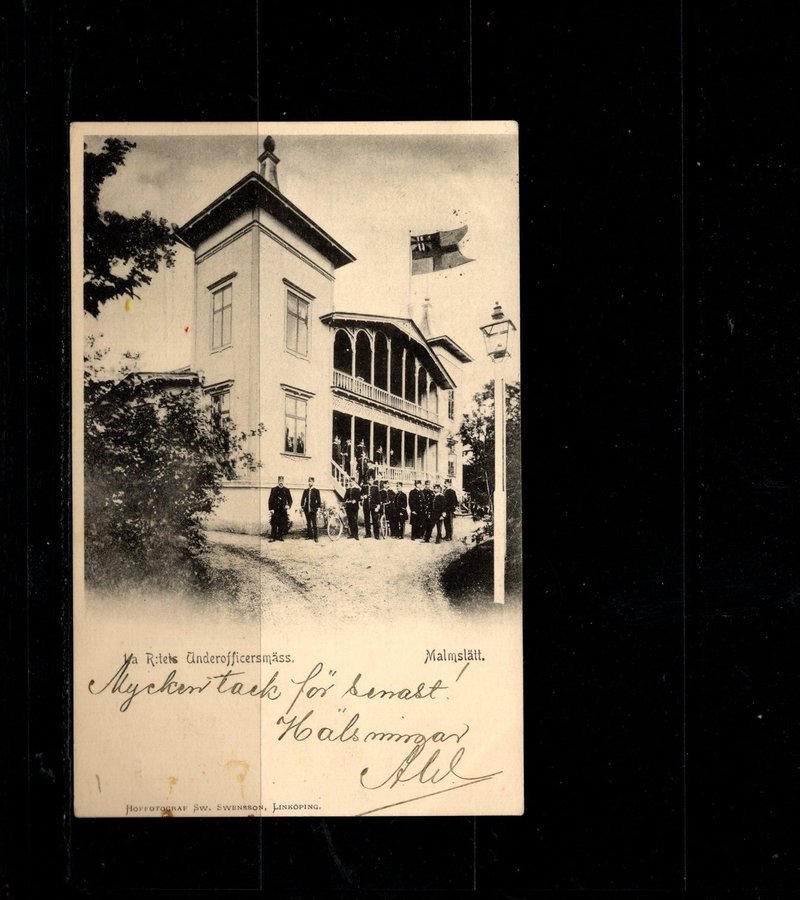 1:a R:tets Underofficersmäss. Malmslätt.
Mycken tack för senast!
Hälsningar
HOFFOTOGRAF SW. SWENSSON, LINKÖPING.